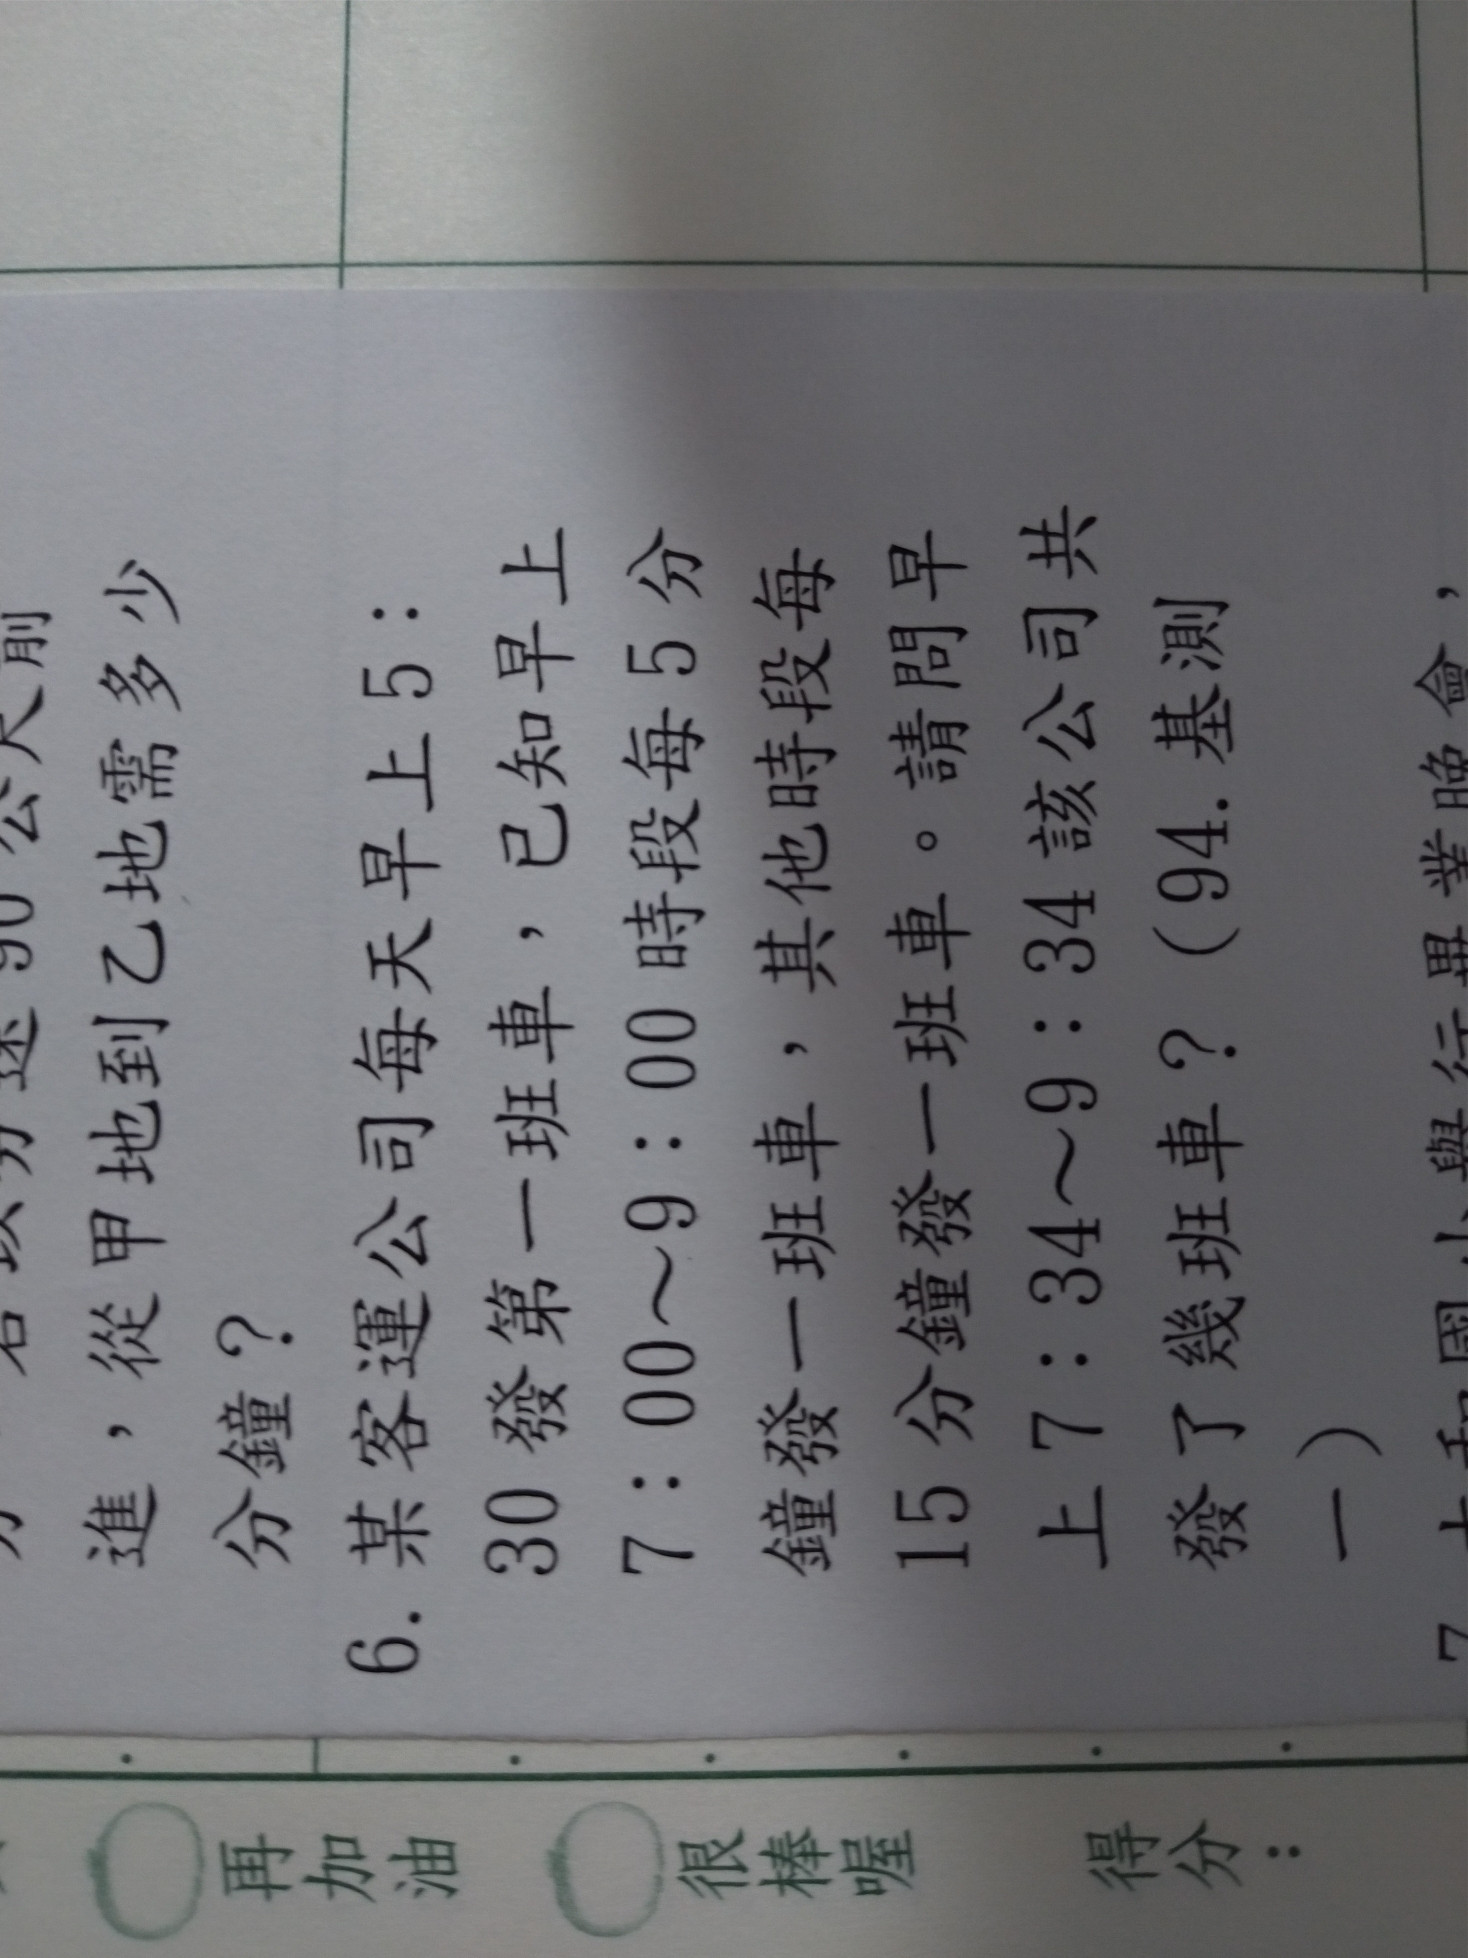 進，從甲地到乙地需多少
分鐘？
6. 某客運公司每天早上 5：
30 發第一班車，已知早上
7：00～9：00 時段每 5 分
鐘發一班車，其他時段每
15 分鐘發一班車。請問早
上 7：34～9：34 該公司共
發了幾班車？（94.基測
一）
再加油
很棒喔
得分：